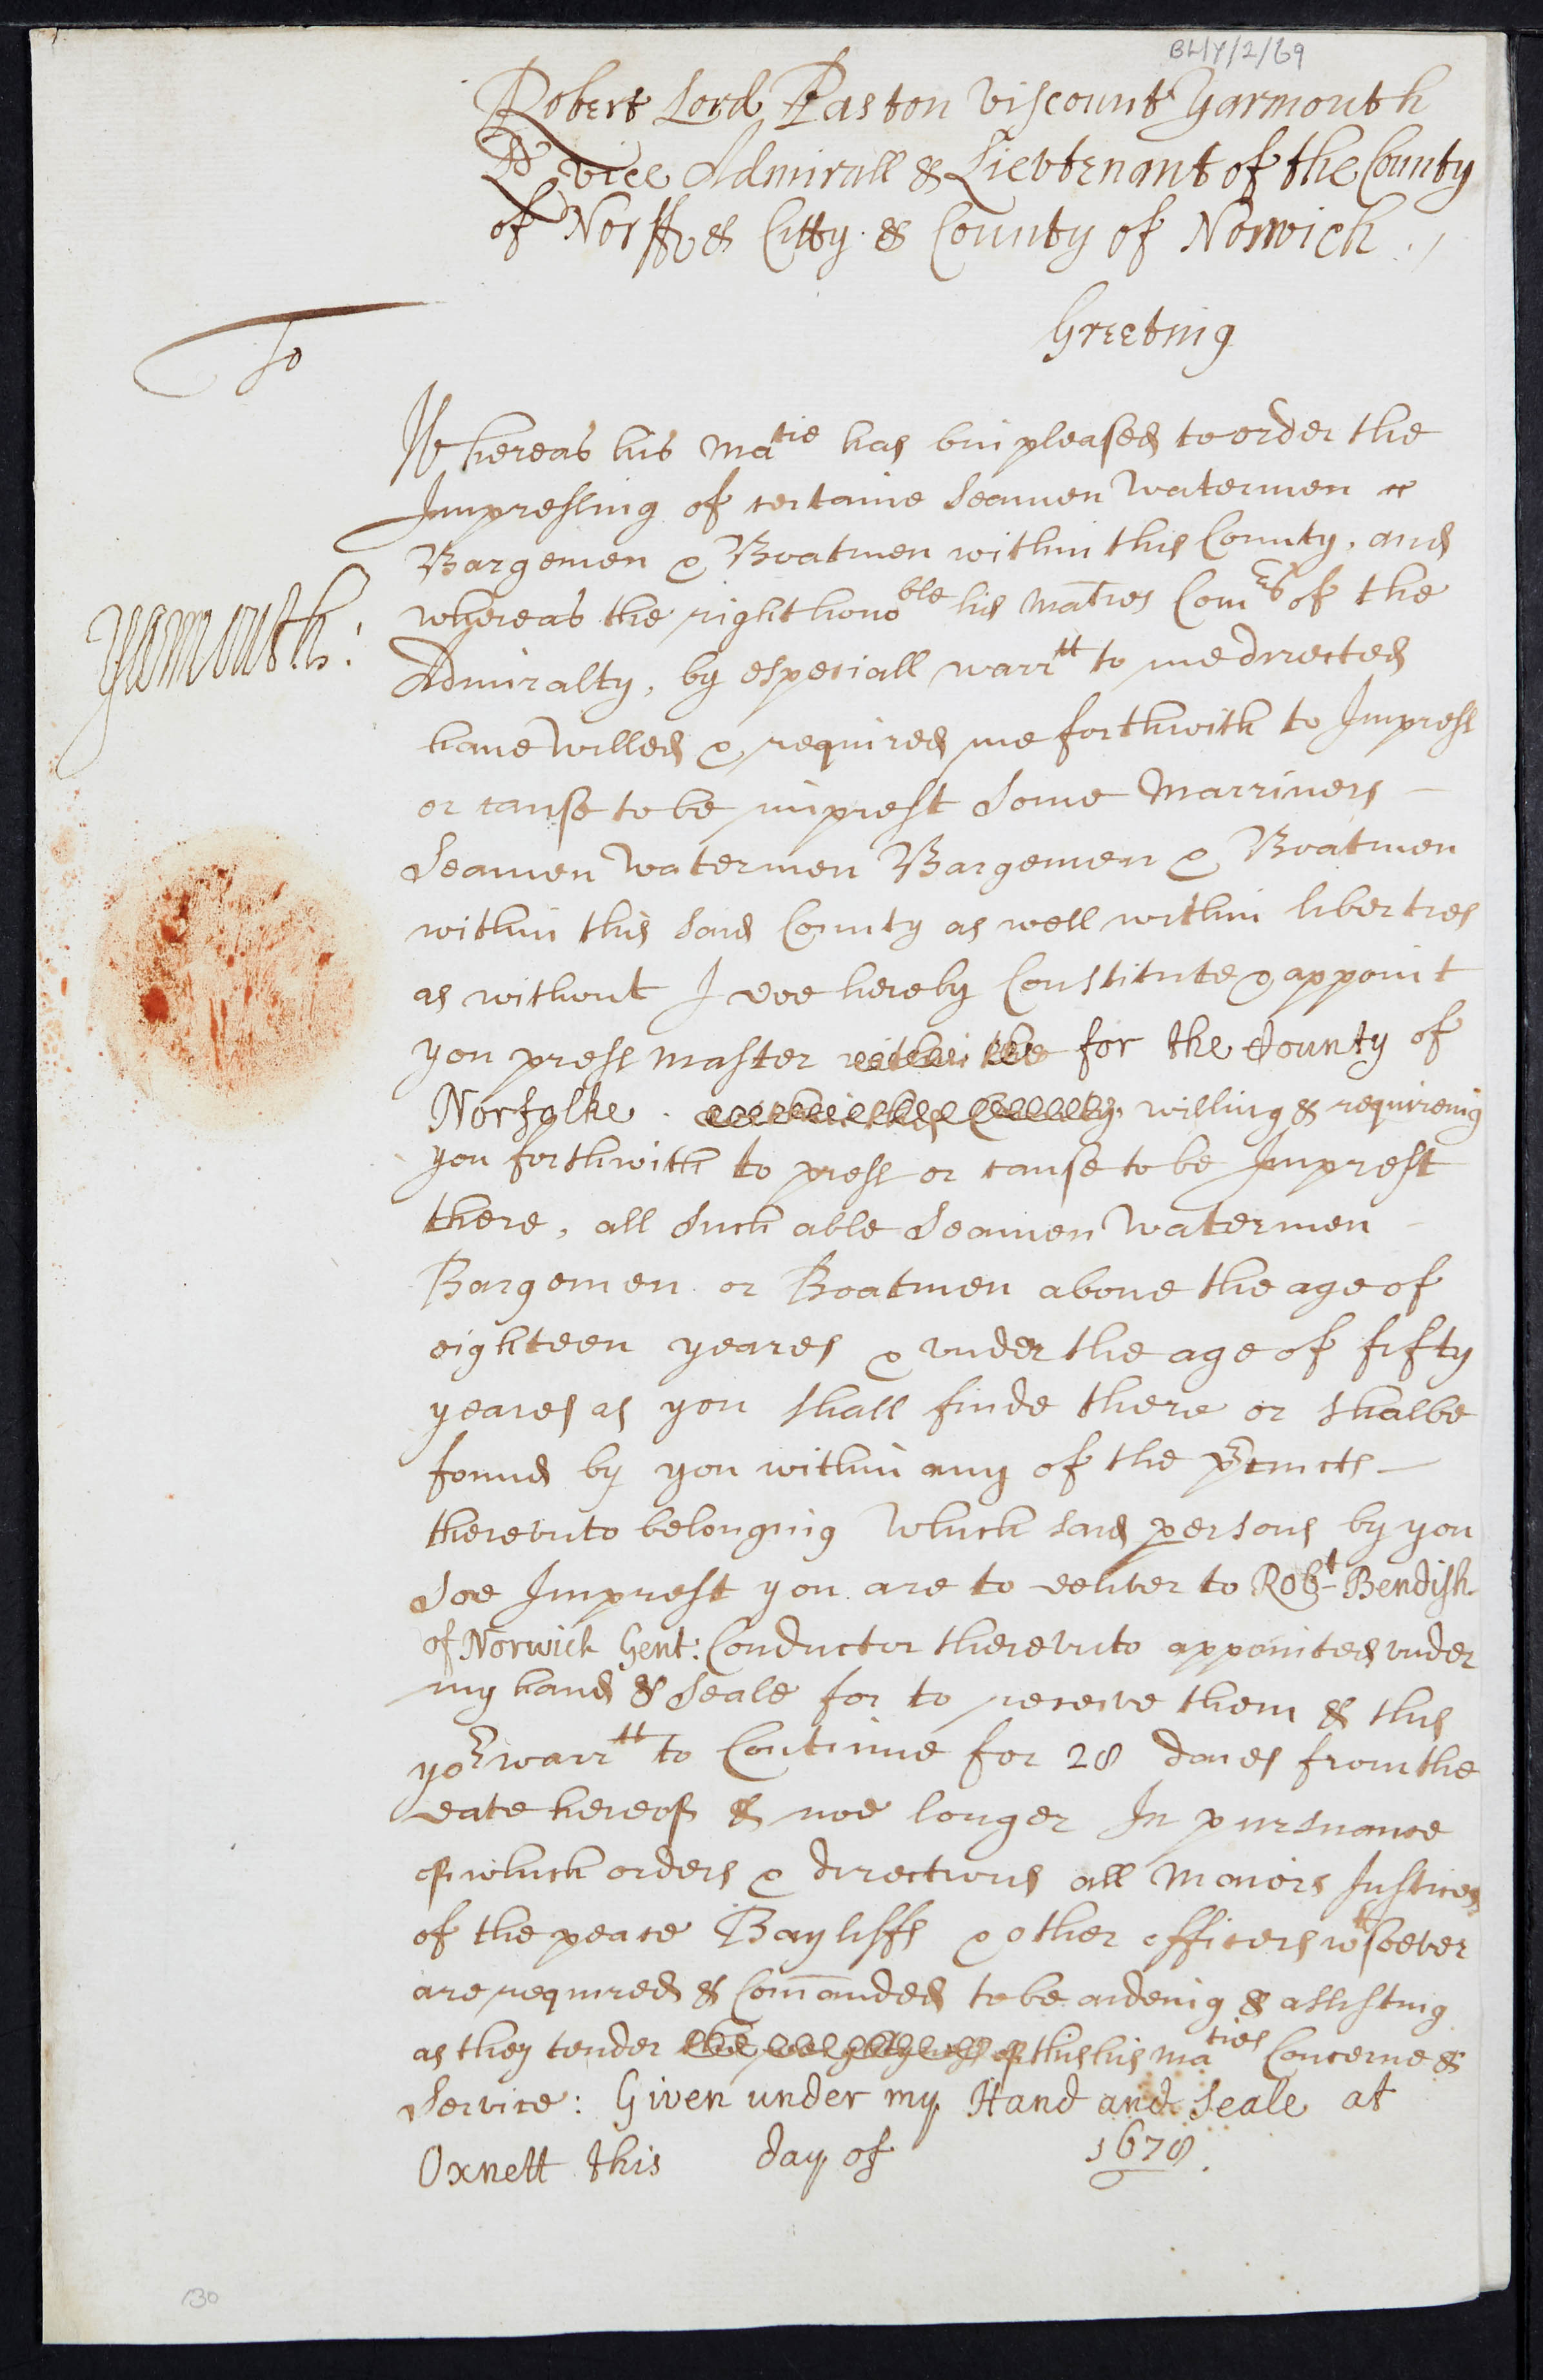 BL/Y/2/69
Robert Lord Paston Viscount Yarmouth
vice Admirall & Lievtenant of the County
of Norff & Citty & County of Norwich
Greeting
To
Whereas his Matie has bin pleased to order the
Impressing of certaine Seamen Watermen
Bargemen & Boatmen within this County, and
whereas the right honoble his Maties Comrs of the
Admiralty, by especiall warrtt to me directed
Yarmouth:
have Willed & required me forthwith to Impress
or cause to be imprest Some Marriners
Seamen Watermen Bargemen & Boatmen
within this said County as well within liberties
as without I doe hereby Constitute & appoint
you press master for the County of
Norfolke willing & requireing
you forthwith to press or cause to be Imprest
there, all such able Seamen Watermen
Bargemen or Boatmen above the age of
eighteen yeares & vnder the age of fifty
yeares as you shall finde there or shalbe
found by you within any of the prcincts
therevnto belonging Which said persons by you
soe Imprest you are to deliver to Robt Bendish
of Norwich Gent: Conductor therevnto appointed vnder
my hand & Seale for to receive them & this
yor warrtt to Continue for 28 daies from the
date hereof & noe longer In pursuance
of which orders & directions all Maiors Justices
of the peace Bayliffs & other officers wtsoever
are required & Comanded to be aideing & assisting
as they tender of this his Maties Concerne &
Service: Given under my Hand and Seale at
Oxnett this day of 1678.
130